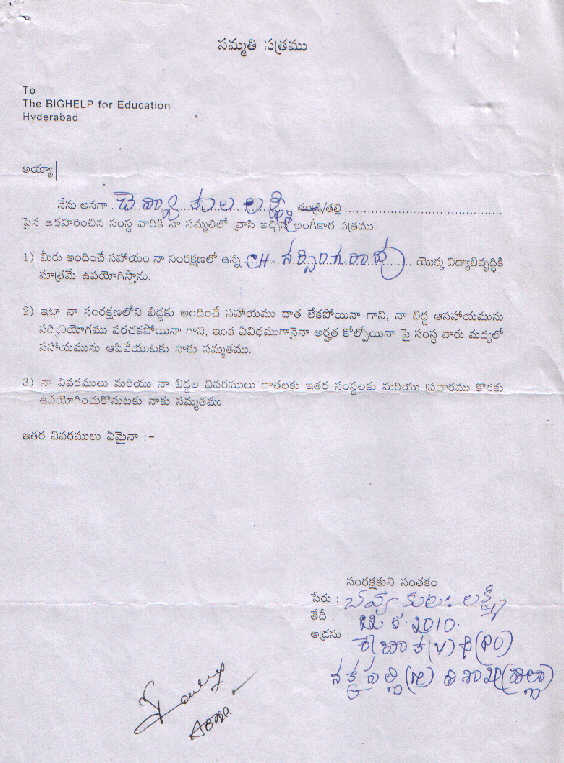 సమ్మతి పత్రము
To
The BIGHELP for Education
Hyderabad
అయ్యా
నేను అనగా .. తండ్రి/తల్లి
పైన ఉదహరించిన సంస్థ వారికి నా సమ్మతిలో వ్రాసి ఇచ్చిన అంగీకార పత్రము
1) మీరు అందించే సహాయం నా సంరక్షణలో ఉన్న CH. యొక్క విద్యాభివృద్ధికి
మాత్రమే ఉపయోగిస్తాను.
2) ఇటా నా సంరక్షణలోని బిడ్డకు అందించే సహాయము దాత లేకపోయినా గాని, నా బిడ్డ ఆసహాయమును
సద్వినియోగము పరచకపోయినా గాని, ఇంక ఏవిధముగానైనా అర్హత కోల్పోయినా పై సంస్థ వారు మధ్యలో
సహాయమును ఆపివేయుటకు నాకు సమ్మతము.
3) నా వివరములు మరియు నా బిడ్డల వివరములు దాతలకు ఇతర సంస్థలకు మరియు ప్రచారము కొరకు
ఉపయోగించుకొనుటకు నాకు సమ్మతము
ఇతర వివరములు ఏమైనా :-
సంరక్షకుని సంతకం
పేరు :
తేదీ 2010.
అడ్రసు (v) (PO)